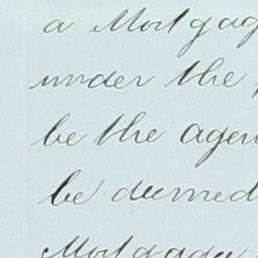 a Mortgag
under the
be the agen
be deemed
Mortgage